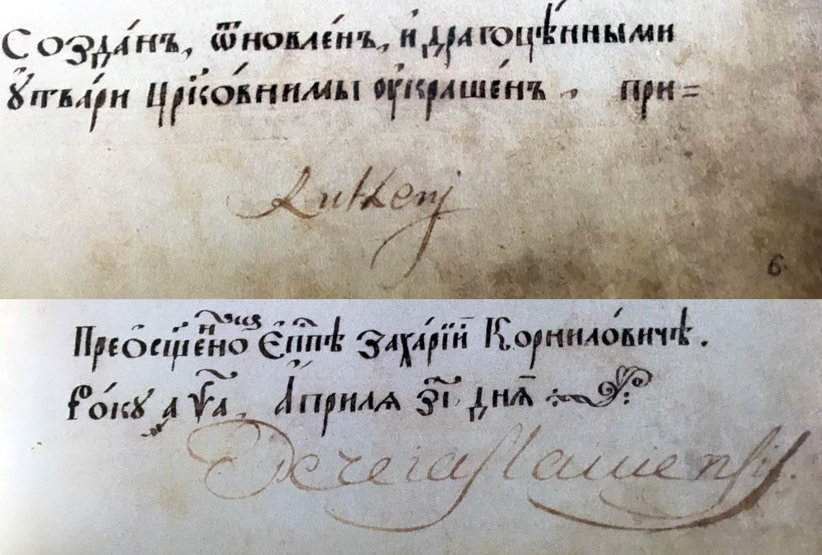 Созда́нъ, ѿновле́нъ, и҆ драгоцѣ́нными
ꙋ҆тва́ри цр҃ко́внимы оу҆краше́нъ. при=
Ruthenj
6
Преѡсщ҃енно Єп҃пѣ Заха́рїй Корнило́вичѣ.
Ро́кꙋ аѱ҃а, А҆прилѧ з҃і днѧ҃
Pereiaslauiensis.